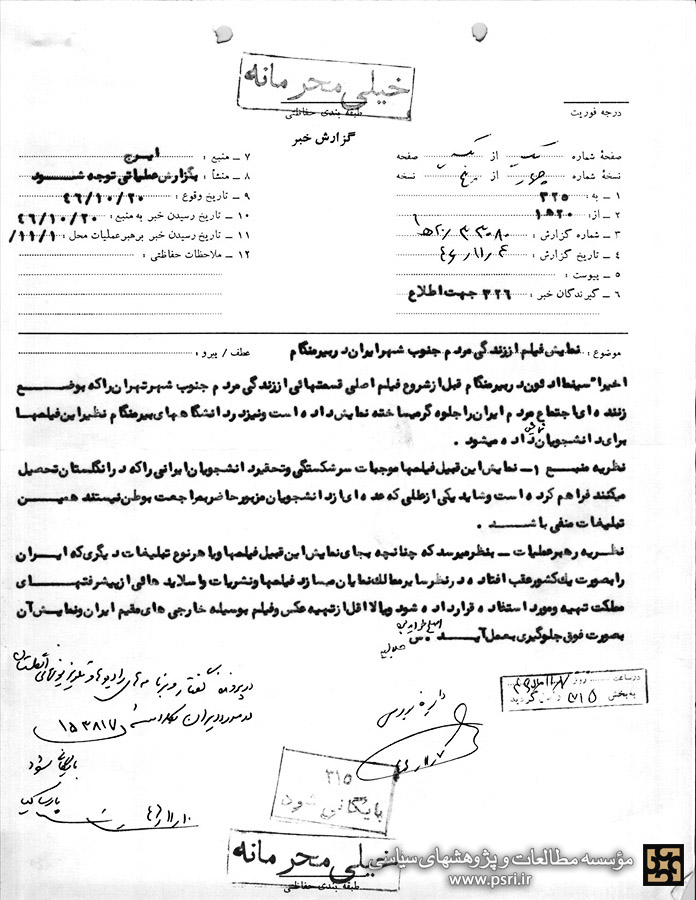 خیلی محرمانه
طبقه بندی حفاظتی
درجه فوریت
گزارش خبر
صفحه شماره یک از یک صفحه
نسخه شماره چهار از پنج نسخه
۱ ـ به : ۳۲۵
۲ ـ از : ۱ﻫ۲۰
۳ ـ شماره گزارش :
۴ ـ تاریخ گزارش :
۵ ـ پیوست :
۶ ـ گیرندگان خبر : ۳۲۶ جهت اطلاع
۷ ـ منبع : ایرج
۸ ـ منشأ : بگزارش عملیاتی توجه شود
۹ ـ تاریخ وقوع : ۴۶/۱۰/۲۰
۱۰ ـ تاریخ رسیدن خبر به منبع : ۴۶/۱۰/۲۰
۱۱ ـ تاریخ رسیدن خبر برهبر عملیات محل : ۱/۱۱/
۱۲ ـ ملاحظات حفاظتی :
موضوع : نمایش فیلم از زندگی مردم جنوب شهر ایران در بیرمنگام
عطف / پیرو :
اخیرا" سینما ادئون در بیرمنگام قبل از شروع فیلم اصلی قسمتهائی از زندگی مردم جنوب شهر تهران را که بوضع
زننده ای اجتماع مردم ایران را جلوه گر میساخته نمایش داده است و نیز در دانشگاههای بیرمنگام نظیر این فیلمها
برای دانشجویان نمایش داده میشود .
نظریه منبع ۱ـ نمایش این قبیل فیلمها موجبات سرشکستگی و تحقیر دانشجویان ایرانی را که در انگلستان تحصیل
میکنند فراهم کرده است و شاید یکی از عللی که عده ای از دانشجویان مزبور حاضر بمراجعت بوطن نیستند همین
تبلیغات منفی باشد .
نظریه رهبر عملیات ـ بنظر میرسد که چنانچه بجای نمایش این قبیل فیلمها و یا هر نوع تبلیغات دیگری که ایران
را بصورت یك کشور عقب افتاده در نظر سایر ممالك نمایان میسازد فیلمها و نشریات و اسلاید هائی از پیشرفتهای
مملکت تهیه و مورد استفاده قرار داده شود و یا لااقل از تهیه عکس و فیلم بوسیله خارجی های مقیم ایران و نمایش آن
بصورت فوق جلوگیری بعمل آید .
در ساعت روز
به بخش ۳۱۵ گردید
دایره بررسی
در پرونده گفتار و برنامه های رادیوها و تلویزیونهای انگلستان
در مورد ایران
۱۵۳۸۱۷
بایگانی شود
۳۱۵
بایگانی شود
خیلی محرمانه
طبقه بندی حفاظتی
مؤسسه مطالعات و پژوهشهای سیاسی
www.psri.ir